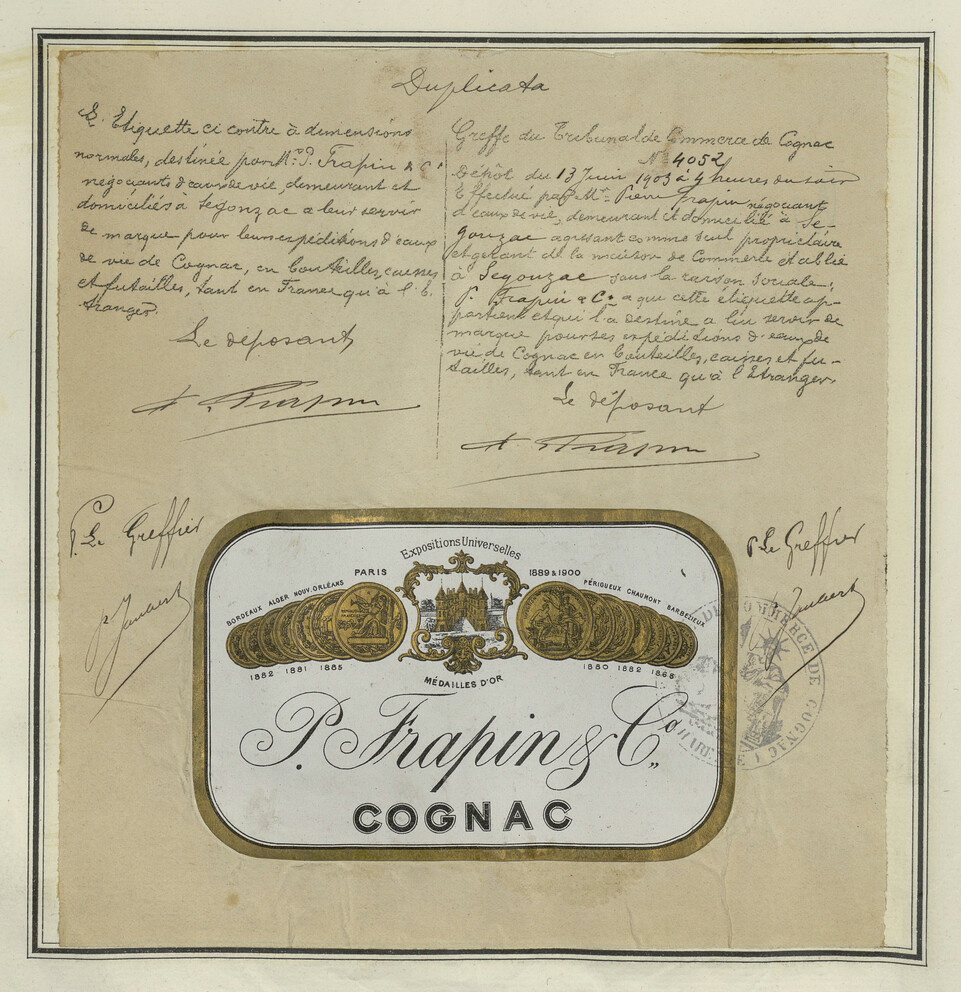 Duplicata
L'Etiquette ci contre à dimensions
normales, destinée par Mr. P. Frapin & Co
négociants d'eaux de vie, demeurant et
domiciliés à Segonzac a leur servir
de marque pour leurs expéditions d'eaux
de vie de Cognac, en bouteilles, caisses
et futailles, tant en France qu'à l'E-
tranger.
Le déposant
P. Frapin
Greffe du Tribunal de Commerce de Cognac
No 4052
Dépôt du 13 Juin 1903 à 4 heures du soir
Effectué par Mr. Pierre Frapin négociant
d'eaux de vie, demeurant et domicilié à Se-
gonzac agissant comme seul propriétaire
et gérant de la maison de Commerce établie
à Segonzac sous la raison sociale:
P. Frapin & Co a qui cette étiquette ap-
partient et qui l'a destine a lui servir de
marque pour ses expéditions d'eaux de
vie de Cognac en bouteilles, caisses et fu-
tailles, tant en France qu'à l'Etranger.
Le déposant
P. Frapin
P. Le Greffier
P. Le Greffier
Expositions Universelles
PARIS
1889 & 1900
BORDEAUX ALGER NOUV. ORLÉANS
PÉRIGUEUX CHAUMONT BARBEZIEUX
1882 1881 1885
1880 1882 1868
MÉDAILLES D'OR
P. Frapin & Co
COGNAC
DE COMMERCE DE COGNAC